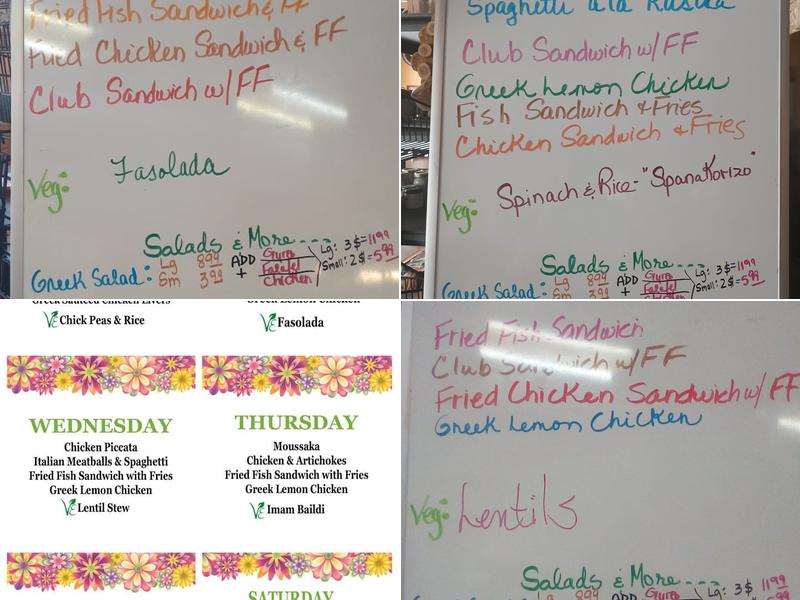 Fried Fish Sandwich & FF
Fried Chicken Sandwich & FF
Club Sandwich w/FF
Veg: Fasolada
Salads & More
Greek Salad: Lg 8.99 Sm 3.99
ADD + Gyro Falafel Chicken
Lg: 3$=11.99
Small: 2$=5.99
Spaghetti a la
Club Sandwich w/FF
Greek Lemon Chicken
Fish Sandwich & Fries
Chicken Sandwich & Fries
Veg: Spinach & Rice - "SpanaKorizo"
Salads & More
Greek Salad: Lg 8.99 Sm 3.99
ADD + Gyro Falafel Chicken
Lg: 3$=11.99
Small: 2$=5.99
Greek Sauteed Chicken Livers
Chick Peas & Rice
Greek Lemon Chicken
Fasolada
WEDNESDAY
Chicken Piccata
Italian Meatballs & Spaghetti
Fried Fish Sandwich with Fries
Greek Lemon Chicken
Lentil Stew
THURSDAY
Moussaka
Chicken & Artichokes
Fried Fish Sandwich with Fries
Greek Lemon Chicken
Imam Baildi
SATURDAY
Fried Fish Sandwich
Club Sandwich w/FF
Fried Chicken Sandwich w/ FF
Greek Lemon Chicken
Veg: Lentils
Salads & More
Lg 8.99
ADD Gyro
Lg: 3$ 11.99